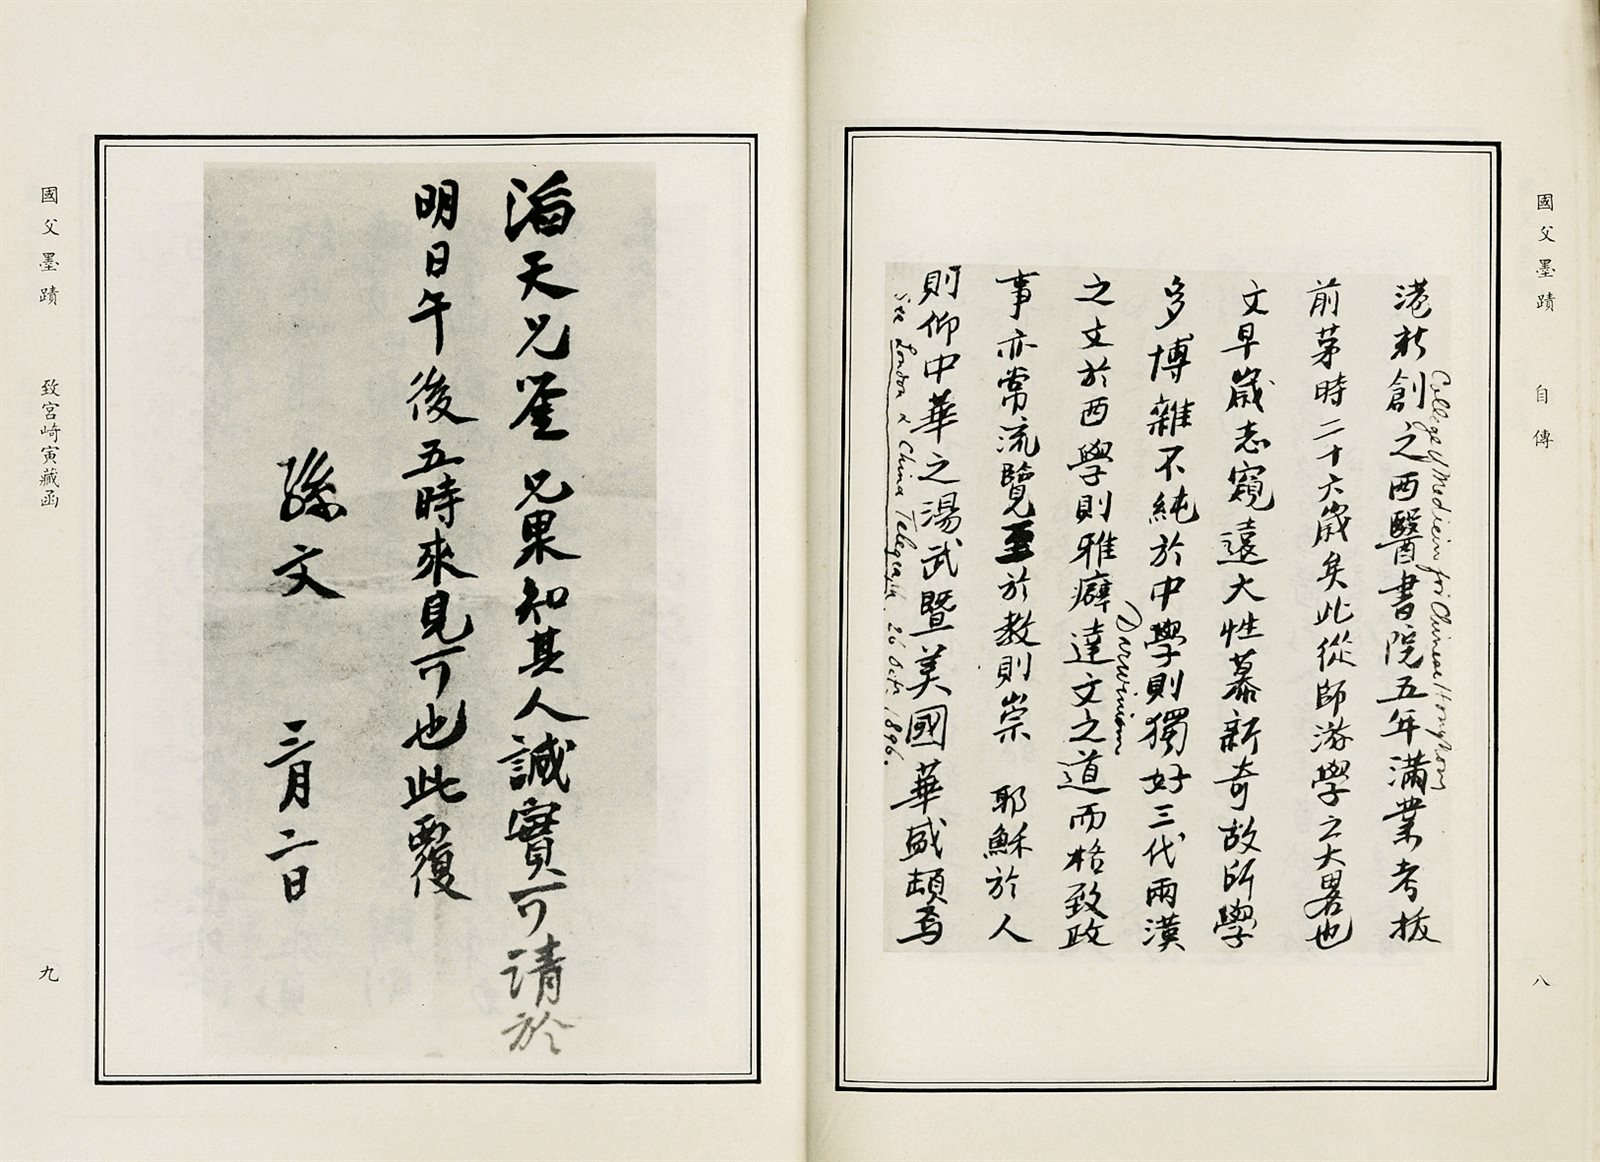 國父墨蹟 自傳 八
港新創之西醫書院五年滿業考拔
College of Medicien for Chinese Hongkon
前茅時二十六歲矣此從師游學之大畧也
文早歲志窺遠大性慕新奇故所學
多博雜不純於中學則獨好三代兩漢
之文於西學則雅癖達文之道而格致政
Darwinism
事亦常流覽至於教則崇 耶穌於人
則仰中華之湯武暨美國華盛頓焉
See London & China Telegraph. 26 Oct. 1896.
滔天兄鑒 兄果知其人誠實可請於
明日午後五時來見可也此覆
孫文 三月二日
國父墨蹟 致宮崎寅藏函 九